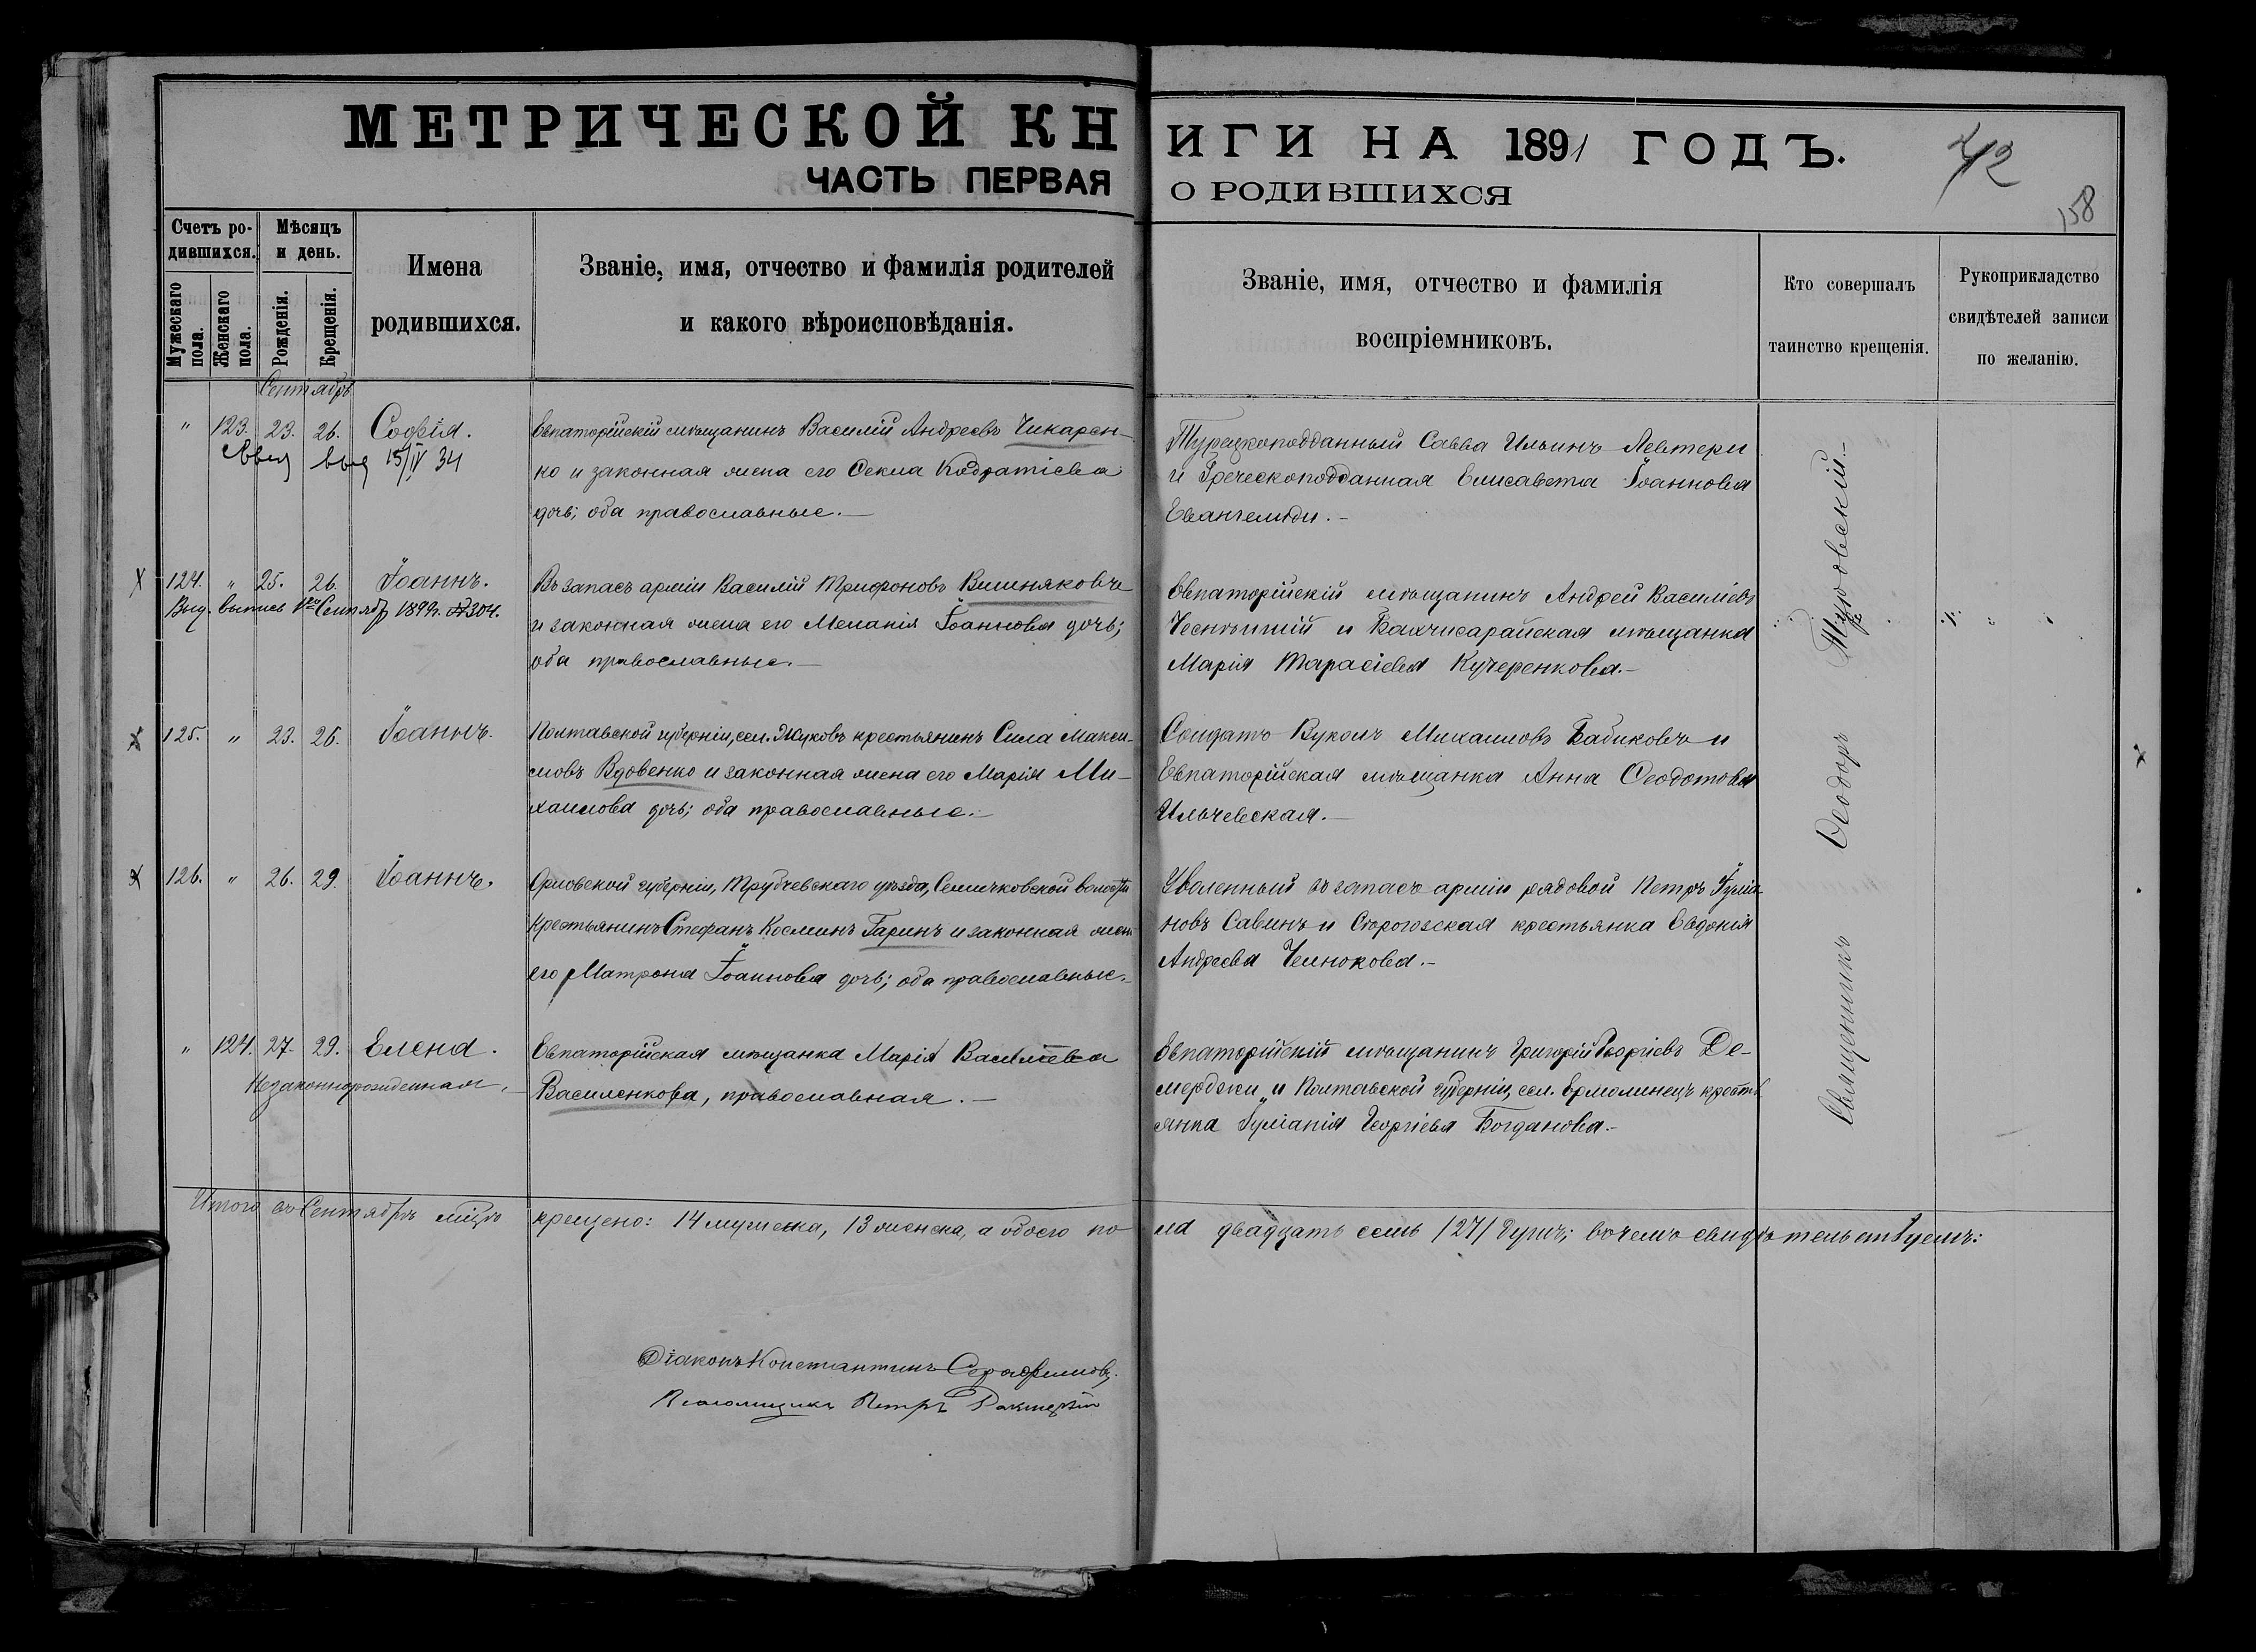 МЕТРИЧЕСКОЙ КНИГИ НА 1891 ГОДЪ.
42
ЧАСТЬ ПЕРВАЯ О РОДИВШИХСЯ
158
Счетъ родившихся.
Мужескаго пола.
Женскаго пола.
Мѣсяцъ и день.
Рожденія.
Крещенія.
Имена родившихся.
Званіе, имя, отчество и фамилія родителей
и какого вѣроисповѣданія.
Званіе, имя, отчество и фамилія
воспріемниковъ.
Кто совершалъ
таинство крещенія.
Рукоприкладство
свидѣтелей записи
по желанію.
Сентябрь
" 123. 23. 26. Софія.
15/IV 34
Евпаторійскій мѣщанинъ Василій Андреевъ Чикарен-
ко и законная жена его Текла Кодратіева
дочь; оба православные.—
Турецкоподданный Савва Ильинъ Левтери
и Греческоподданная Елисавета Іоаннова
Евангелиди.—
124. " 25. 26. Іоаннъ.
Выд. выпись Сентяб 1899г. №304.
Въ запасъ арміи Василій Трифоновъ Вишняковъ
и законная жена его Меланія Іоаннова дочь;
оба православные.—
Евпаторійскій мѣщанинъ Андрей Василіевъ
и Бахчисарайская мѣщанка
Марія Тарасіева Кучеренкова.—
125. " 23. 26. Іоаннъ.
Полтавской губерніи, сел. Жуковъ крестьянинъ Сила Макси-
мовъ Вдовенко и законная жена его Марія Ми-
хаилова дочь; оба православные.—
Солдатъ Вуколъ Михаиловъ Бабиковъ и
Евпаторійская мѣщанка Анна Ѳеодотова
Ильчевская.—
126. " 26. 29. Іоаннъ.
Орловской губерніи, Трубчевскаго уѣзда, Семячковской волости
крестьянинъ Стефанъ Косминъ Гаринъ и законная жена
его Матрона Іоаннова дочь; оба православные.—
Уволенный въ запасъ арміи рядовой Петръ Іуліа-
новъ Савинъ и крестьянка Евдокія
Андреева Челнокова.—
" 124. 27. 29. Елена.
Незаконнорожденная.—
Евпаторійская мѣщанка Марія Василіева
Василенкова, православная.—
Евпаторійскій мѣщанинъ Григорій Георгіевъ Де-
мерджи и Полтавской губерніи, сел. Ермолинецъ кресть
янка Іуліанія Георгіева Богданова.—
Священникъ Ѳеодоръ
Итого въ Сентябрѣ мѣцѣ крещено: 14 мужеска, 13 женска, а обоего пола двадцать семь /27/ душъ; въ чемъ свидѣтельствуемъ:
Діаконъ Константинъ Серафимовъ.
Псаломщикъ Петръ